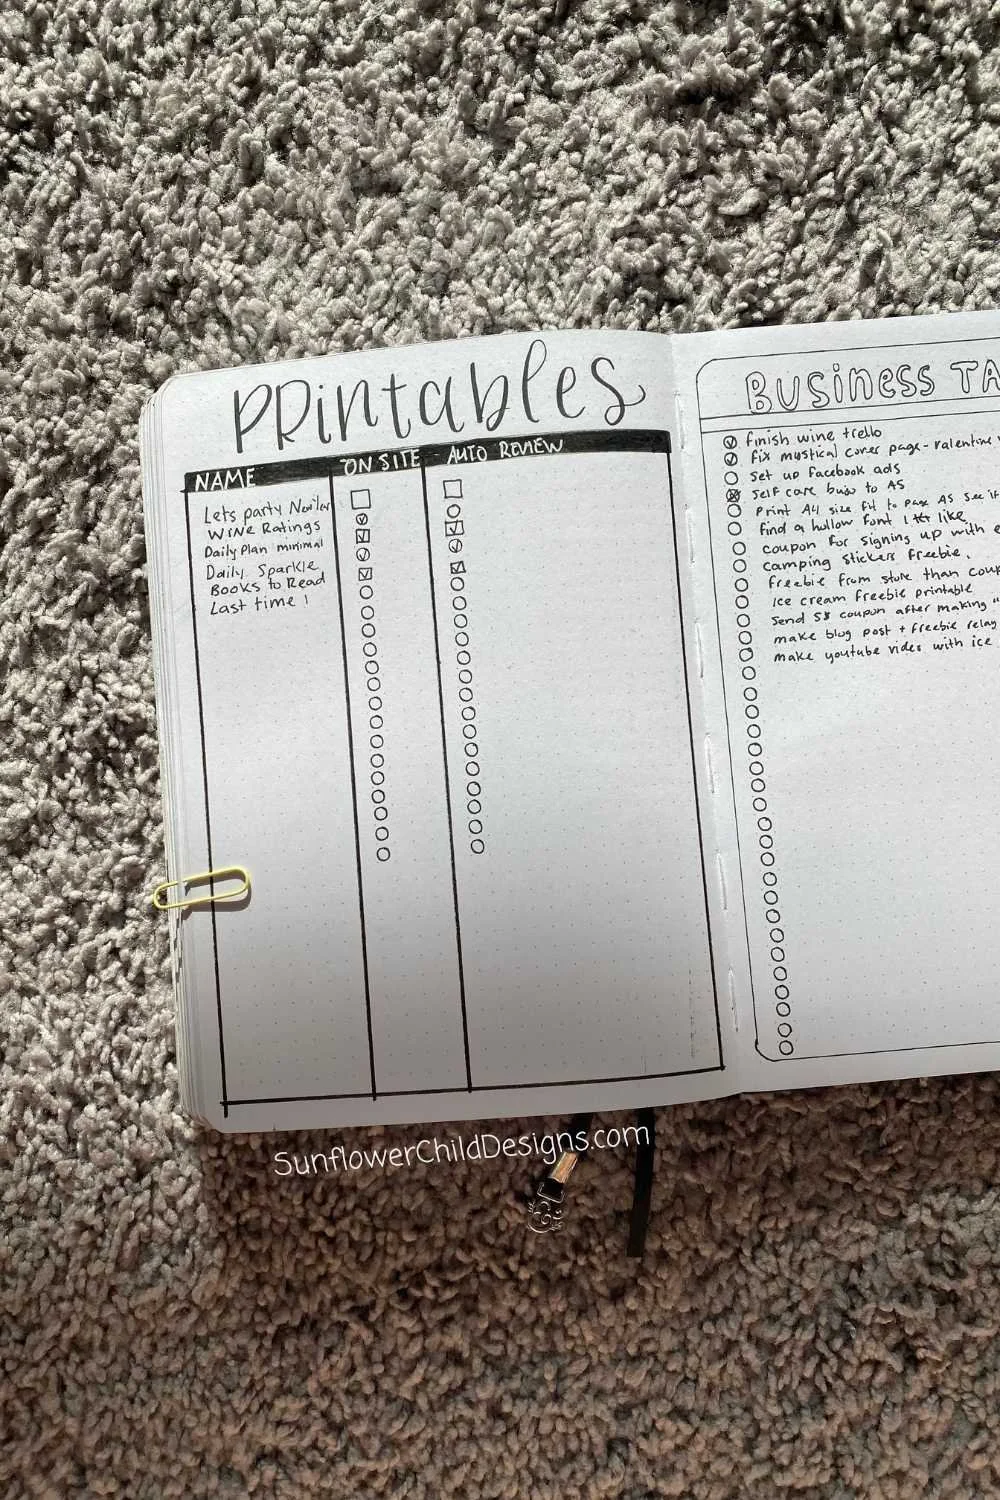 Printables
NAME
ON SITE
AUTO REVIEW
Lets party
Wine Ratings
Daily Plan minimal
Daily Sparkle
Books to Read
Last time!
BUSINESS TA
finish wine trello
fix mystical cover page - valentine
Set up facebook ads
Self care to AS
Print A4 size fit to page AS see if
find a hollow font I like
coupon for signing up with e
camping stickers freebie.
freebie from store than coup
ice cream freebie printable
Send 5$ coupon after making
make blog post + freebie relay
make youtube video with ice
SunflowerChildDesigns.com